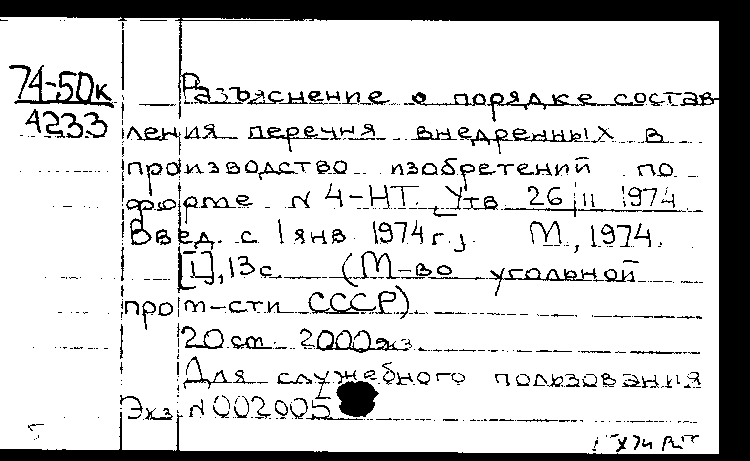 74-50к
4233
Разъяснение о порядке состав
ления перечня внедренных в
производство изобретений по
форме N 4-НТ. Утв 26/II 1974
Введ. с 1 янв 1974г.; М., 1974.
[1], 13с (М-во угольной
пром-сти СССР).
20см. 2000экз.
Для служебного пользования
Экз. N 002005